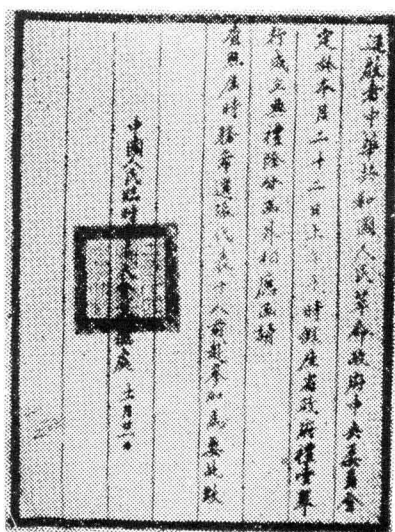 逕啟者中華共和國人民革命政府中央委員會
定於本月二十二日上午 時假座省政府禮堂舉
行成立典禮除分函外相應函請
查照屆時務希選派代表十人前赴參加為要此致
中國人民臨時 代表大會 處 十一月廿一日